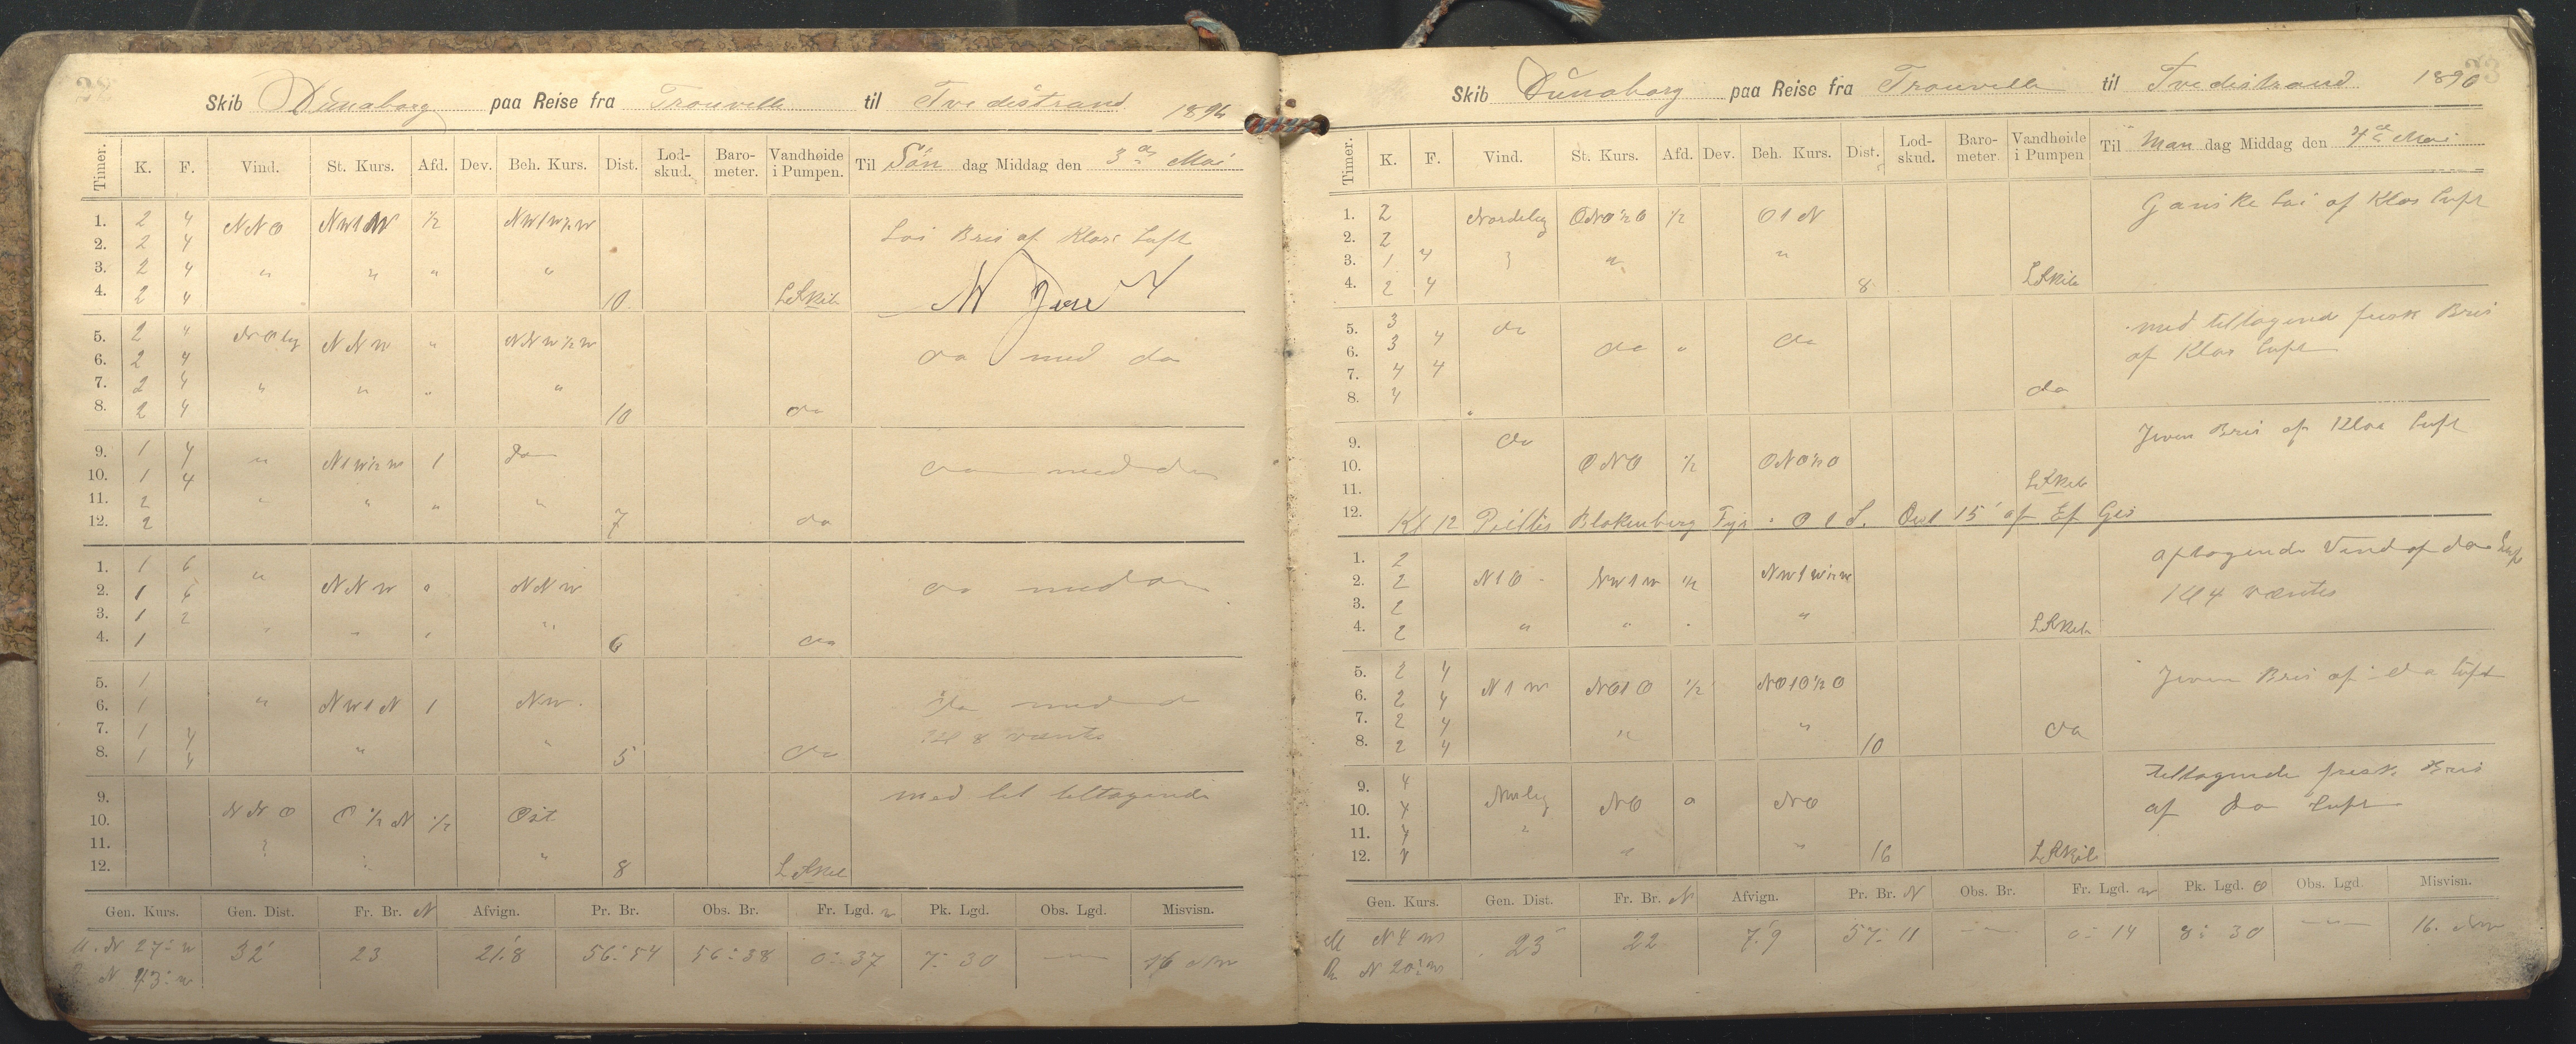 Skib Dunaborg paa Reise fra Trouville til Tvedestrand 1896
Timer. K. F. Vind. St. Kurs. Afd. Dev. Beh. Kurs. Dist. Lod-skud. Baro-meter. Vandhøide i Pumpen. Til Søn dag Middag den 3 Mai
1. 2 4 NNO NW1W ½ NW1W½W
2. 2 4 Lai Bris af Klar Luft
3. 2 4 " " " "
4. 2 4 10 LSkib
5. 2 4 NOlig NNW " NNW½W
6. 2 4 da med da
7. 2 4 " " "
8. 2 4 10 da
9. 1 4 " N1W½W 1 da
10. 1 4 da med da
11. 2 " " " "
12. 2 7 da
1. 1 6 "
2. 1 6 NNW o NNW da med da
3. 1 2
4. 1 " " " " 6 da
5. 1
6. 1 " NW1N 1 NW. da med d
7. 1 4 Kl 8 vænte
8. 1 4 " " 5 da
9. med let tiltagende
10. NNO O½N ½ Ost
11.
12. " 8 LSkib
Gen. Kurs. Gen. Dist. Fr. Br. N Afvign. Pr. Br. Obs. Br. Fr. Lgd. W Pk. Lgd. Obs. Lgd. Misvisn.
N 27° W 32' 23 21.8 56°54 56°38 0°37 7°30 — 16 NW
N 43° W
Skib Dunaborg paa Reise fra Trouville til Tvedestrand 1896
Timer. K. F. Vind. St. Kurs. Afd. Dev. Beh. Kurs. Dist. Lod-skud. Baro-meter. Vandhøide i Pumpen Til Man dag Middag den 4 Mai
1. 2 Nordelig ONO½O ½ O1N Ganske Lai af Klar Luft
2. 2
3. 1 4 " "
4. 2 4 8 LSkib
5. 3 da med tiltagende frisk Bris
6. 3 4 da " da af Klar Luft
7. 4 4
8. 4 da
9. da Jevn Bris af Klar Luft
10. ONO ½ ONO½O
11. LSkib
12. Kl 12 Peiltes Blokenberg Fyr O1S. 15' af
1. 2 aftagende Vind af da Luft
2. 2 N1O NW1W ½ NW1W½W
3. 2 " Kl 4 vænte
4. 2 " " LSkib
5. 2 4 Jevn Bris af da Luft
6. 2 4 N1W NO1O ½ NO1O½O
7. 2 4 " " da
8. 2 4 10
9. 4 Tiltagende frisk Bris
10. 4 NWlig NO o NO af da Luft
11. 4 "
12. 4 " " 16 LSkib
Gen. Kurs. Gen. Dist. Fr. Br. N Afvign. Pr. Br. N Obs. Br. Fr. Lgd. W Pk. Lgd. O Obs. Lgd. Misvisn.
N 4 W 23 22 7.9 57°11 — 0°14 8°30 — 16. NW
N 20° W